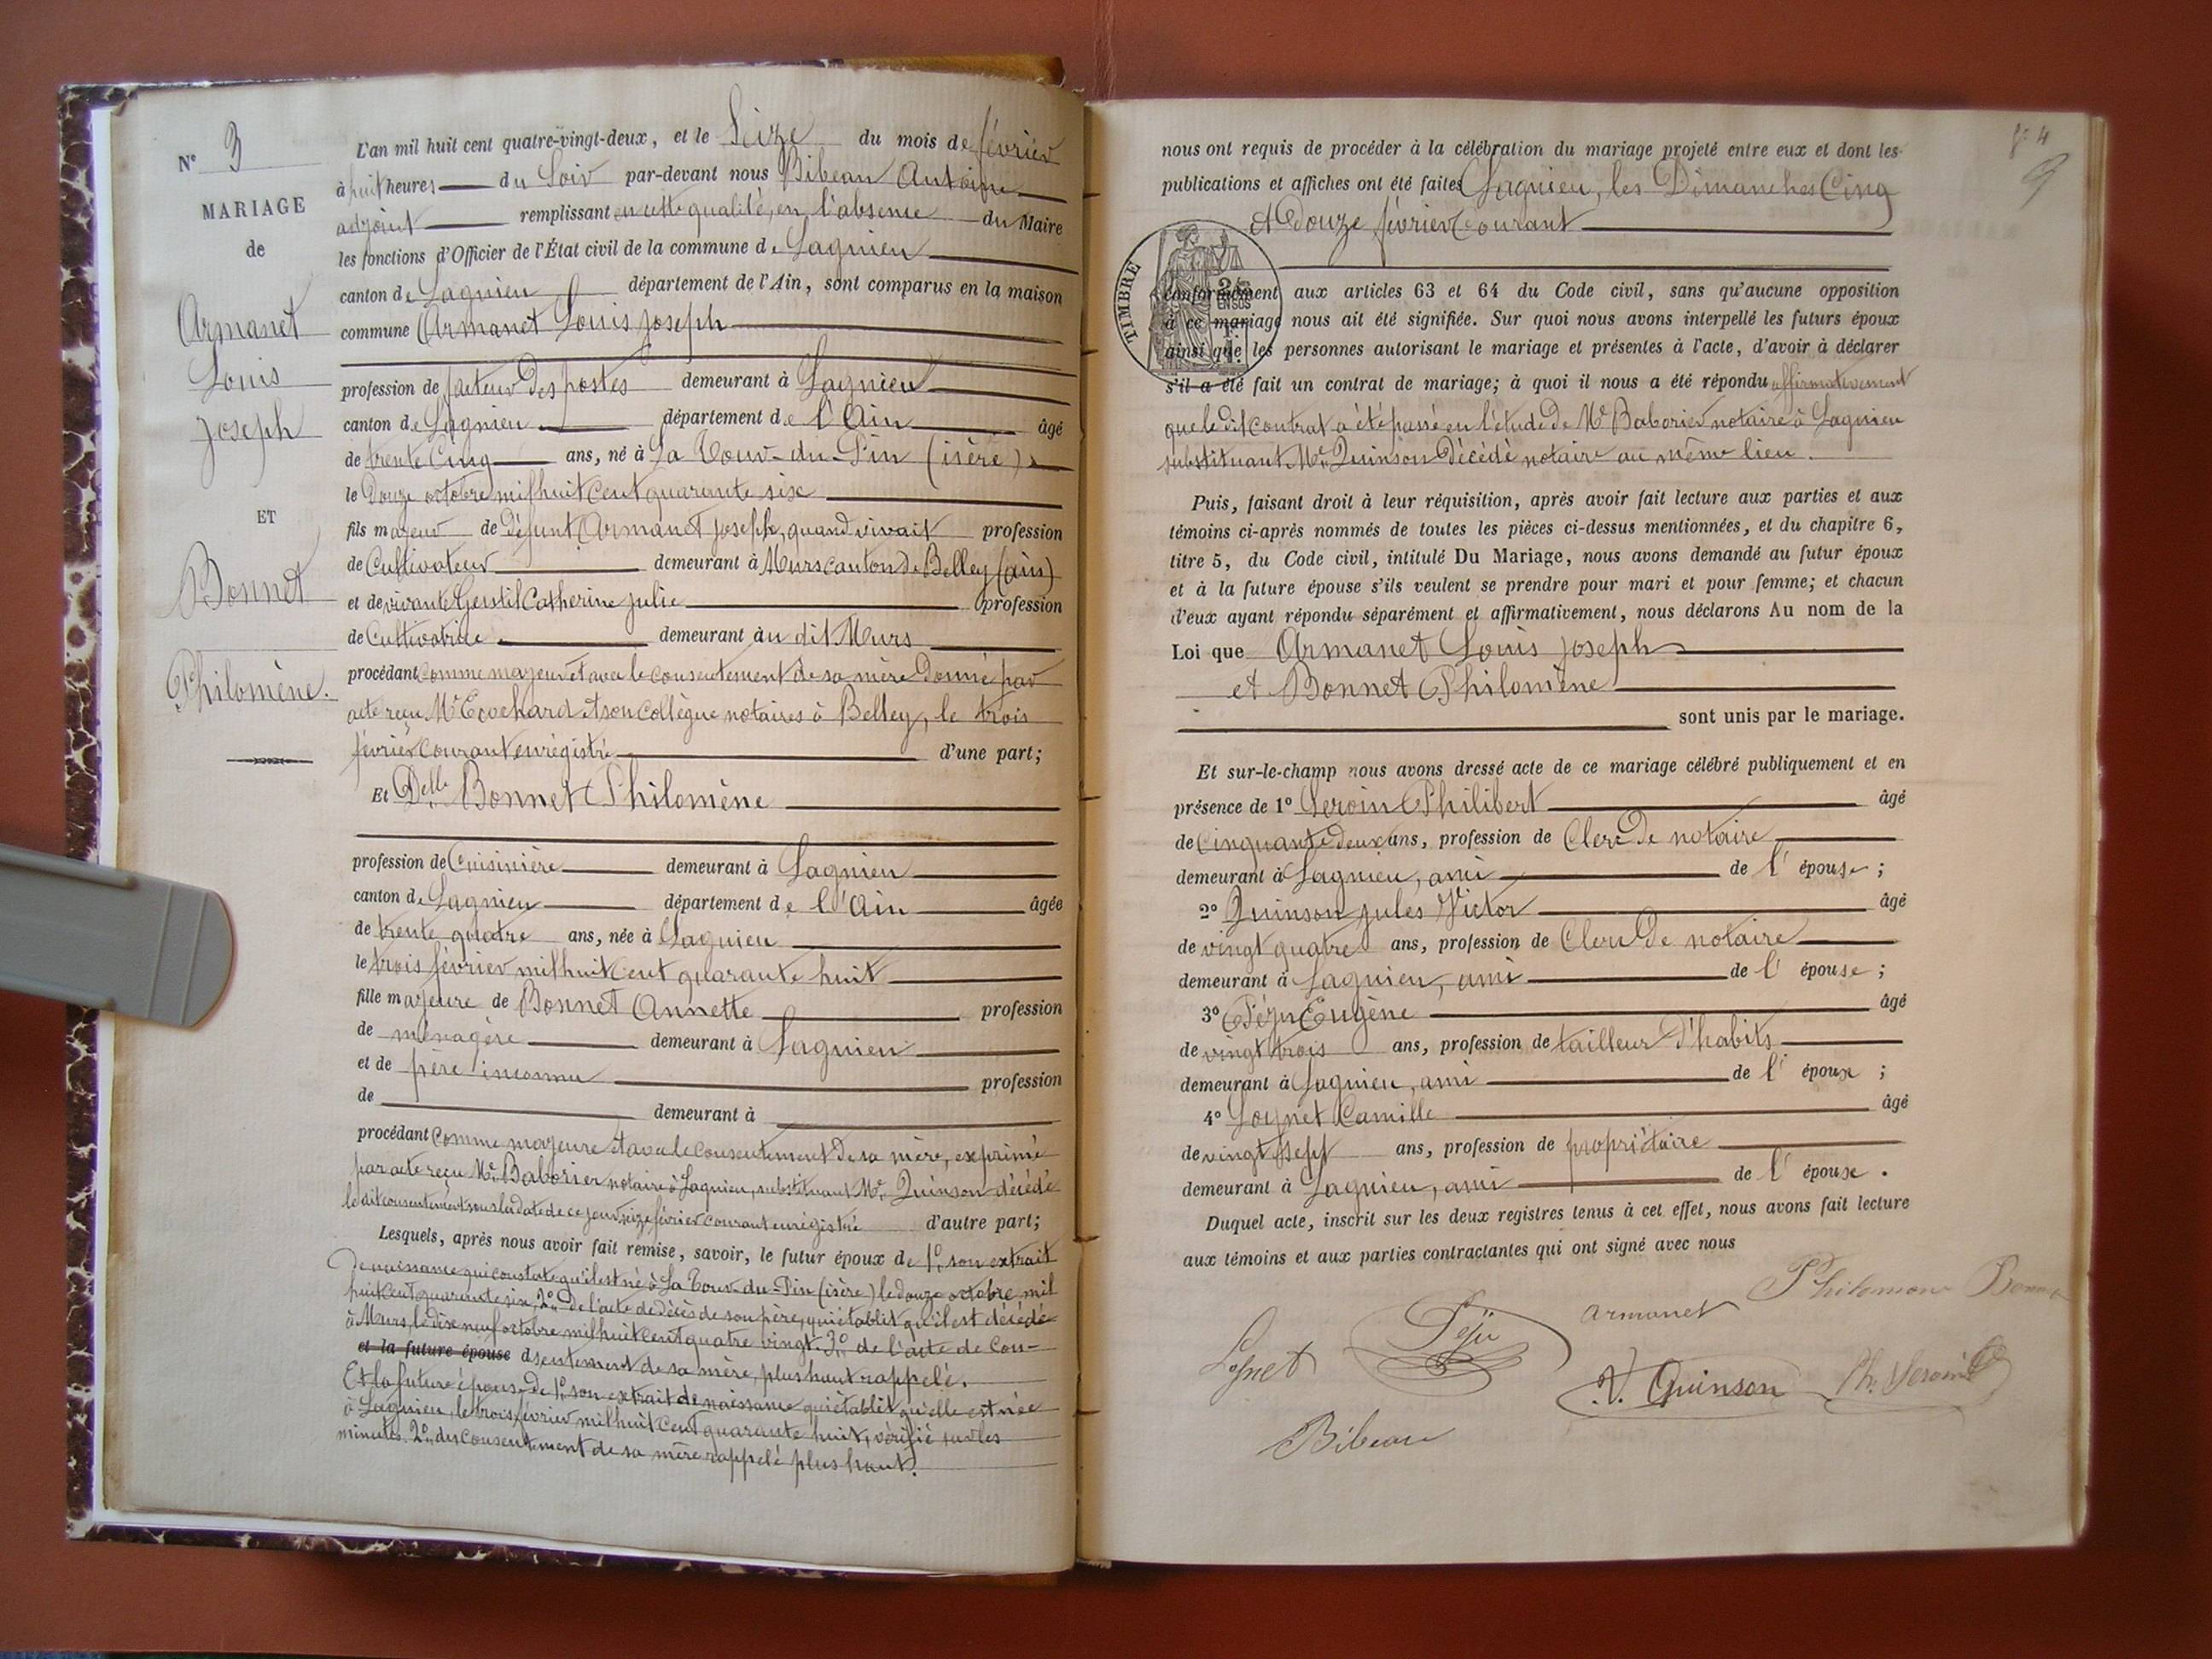 N° 3
MARIAGE
de
Armanet
Louis
Joseph
ET
Bonnet
Philomène.
L'an mil huit cent quatre-vingt-deux, et le Seize du mois de février
à huit heures du Soir par-devant nous Bibeau Antoine
adjoint remplissant en cette qualité, en l'absence du Maire
les fonctions d'Officier de l'État civil de la commune de Lagnieu
canton de Lagnieu département de l'Ain, sont comparus en la maison
commune Armanet Louis Joseph
profession de facteur des postes demeurant à Lagnieu
canton de Lagnieu département de l'Ain âgé
de trente Cinq ans, né à La Tour-du-Pin (isère)
le Douze octobre mil huit Cent quarante six
fils majeur de Défunt Armanet Joseph, quand vivait profession
de Cultivateur demeurant à Murs canton de Belley (ain)
et de vivante Gentil Catherine Julie profession
de Cultivatrice demeurant au dit Murs
procédant Comme majeur et avec le consentement de sa mère Donné par
acte reçu Me Ecochard et son Collègue notaires à Belley, le trois
février Courant enrégistré d'une part;
Et Delle Bonnet Philomène
profession de Cuisinière demeurant à Lagnieu
canton de Lagnieu département de l'Ain âgée
de trente quatre ans, née à Lagnieu
le trois février mil huit Cent quarante huit
fille majeure de Bonnet Annette profession
de ménagère demeurant à Lagnieu
et de père inconnu profession
de demeurant à
procédant Comme majeure et avec le Consentement De sa mère, exprimé
par acte reçu Me Baborier notaire à Lagnieu, substituant Me Quinson décédé
le dit consentement sous la date de ce jour, seize février courant enrégistré d'autre part;
Lesquels, après nous avoir fait remise, savoir, le futur époux de 1° son extrait
De naissance qui constate qu'il est né à La Tour-du-Pin (isère) le douze octobre mil
huit Cent quarante six, 2° De l'acte de décès de son père, qui établit qu'il est décédé
à Murs, le dix neuf octobre mil huit Cent quatre vingt. 3° de l'acte de Con-
et la future épouse dsentement de sa mère, plus haut rappelé.
Et la future épouse, de 1° son extrait de naissance qui établit qu'elle est née
à Lagnieu, le trois février mil huit Cent quarante huit, vérifié sur les
minutes. 2° du Consentement de sa mère rappelé plus haut.
9
nous ont requis de procéder à la célébration du mariage projeté entre eux et dont les
publications et affiches ont été faites Lagnieu, les Dimanches Cinq
et Douze février Courant
TIMBRE
conformément aux articles 63 et 64 du Code civil, sans qu'aucune opposition
à ce mariage nous ait été signifiée. Sur quoi nous avons interpellé les futurs époux
ainsi que les personnes autorisant le mariage et présentes à l'acte, d'avoir à déclarer
s'il a été fait un contrat de mariage; à quoi il nous a été répondu affirmativement
que le dit Contrat a été passé en l'étude De Me Baborier notaire à Lagnieu
substituant Me Quinson Décédé notaire au même lieu.
Puis, faisant droit à leur réquisition, après avoir fait lecture aux parties et aux
témoins ci-après nommés de toutes les pièces ci-dessus mentionnées, et du chapitre 6,
titre 5, du Code civil, intitulé Du Mariage, nous avons demandé au futur époux
et à la future épouse s'ils veulent se prendre pour mari et pour femme; et chacun
d'eux ayant répondu séparément et affirmativement, nous déclarons Au nom de la
Loi que Armanet Louis Joseph
et Bonnet Philomène
sont unis par le mariage.
Et sur-le-champ nous avons dressé acte de ce mariage célébré publiquement et en
présence de 1° Seroin Philibert âgé
de Cinquante Deux ans, profession de Clerc De notaire
demeurant à Lagnieu, ami de l'épouse;
2° Quinson Jules Victor âgé
de vingt quatre ans, profession de Clerc De notaire
demeurant à Lagnieu, ami de l'épouse;
3° Péju Eugène âgé
de vingt trois ans, profession de tailleur D'habits
demeurant à Lagnieu, ami de l'époux;
4° Loynet Camille âgé
de vingt sept ans, profession de propriétaire
demeurant à Lagnieu, ami de l'époux.
Duquel acte, inscrit sur les deux registres tenus à cet effet, nous avons fait lecture
aux témoins et aux parties contractantes qui ont signé avec nous
Philomène Bonnet
Armanet
Loynet Péju
V. Quinson Ph. Seroin
Bibeau